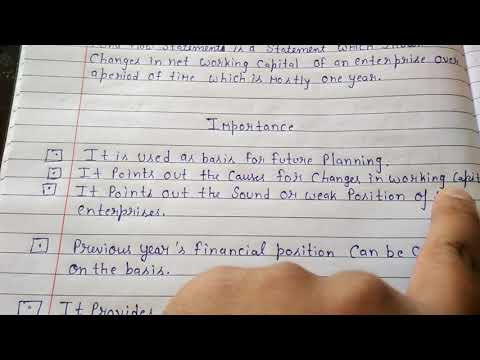 Flow Statements is a Statement which shows
Changes in net working Capital of an enterprise over
a period of time which is mostly one year.
Importance
It is used as basis for future Planning.
It Points out the Causes for Changes in working Capit
It Points out the Sound or weak Position of
enterprises.
Previous year's financial position Can be C
on the basis.
It Provides